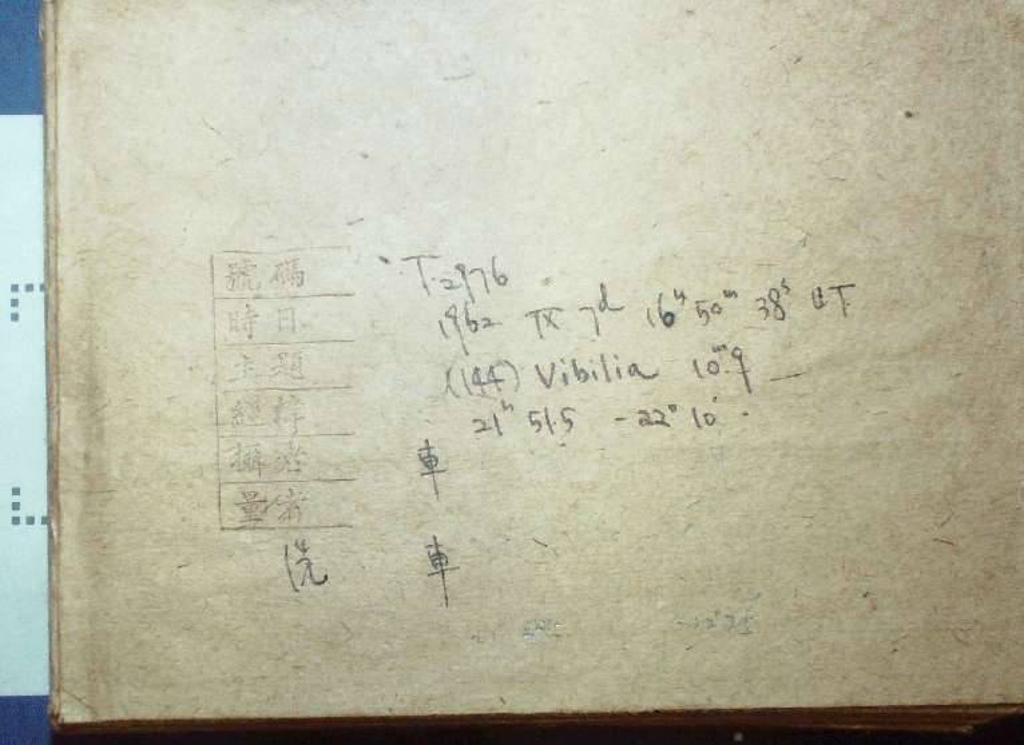 號碼 T-2976
時日 1962 IX 7ᵈ 16ʰ 50ᵐ 38ˢ UT
主題 (144) Vibilia 10ᵐ.9
經緯 21ʰ 51.5 -22° 10'
攝者 車
量者
洗 車